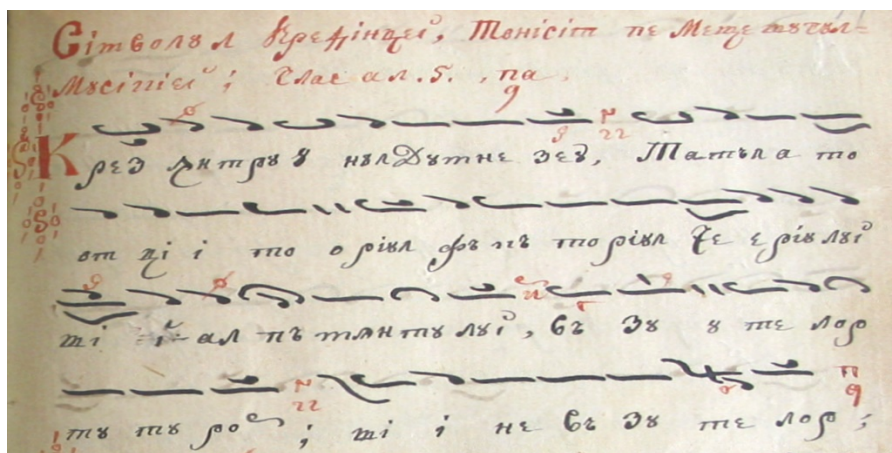 Сімволул Кредінцеї, Тонісіт пе Мещешугул=
Мусікіеї ; Глас ал . 5 . , па .
Крез ꙟнтру у нул Думне зеꙋ, Татъл а то
от ції і то ор іул фъ къ то ріул че ер ю луї
ші і ал пъ мѫнту луї, въ зу у те лор
ту ту ро ; ші і не въ зу те лор ;